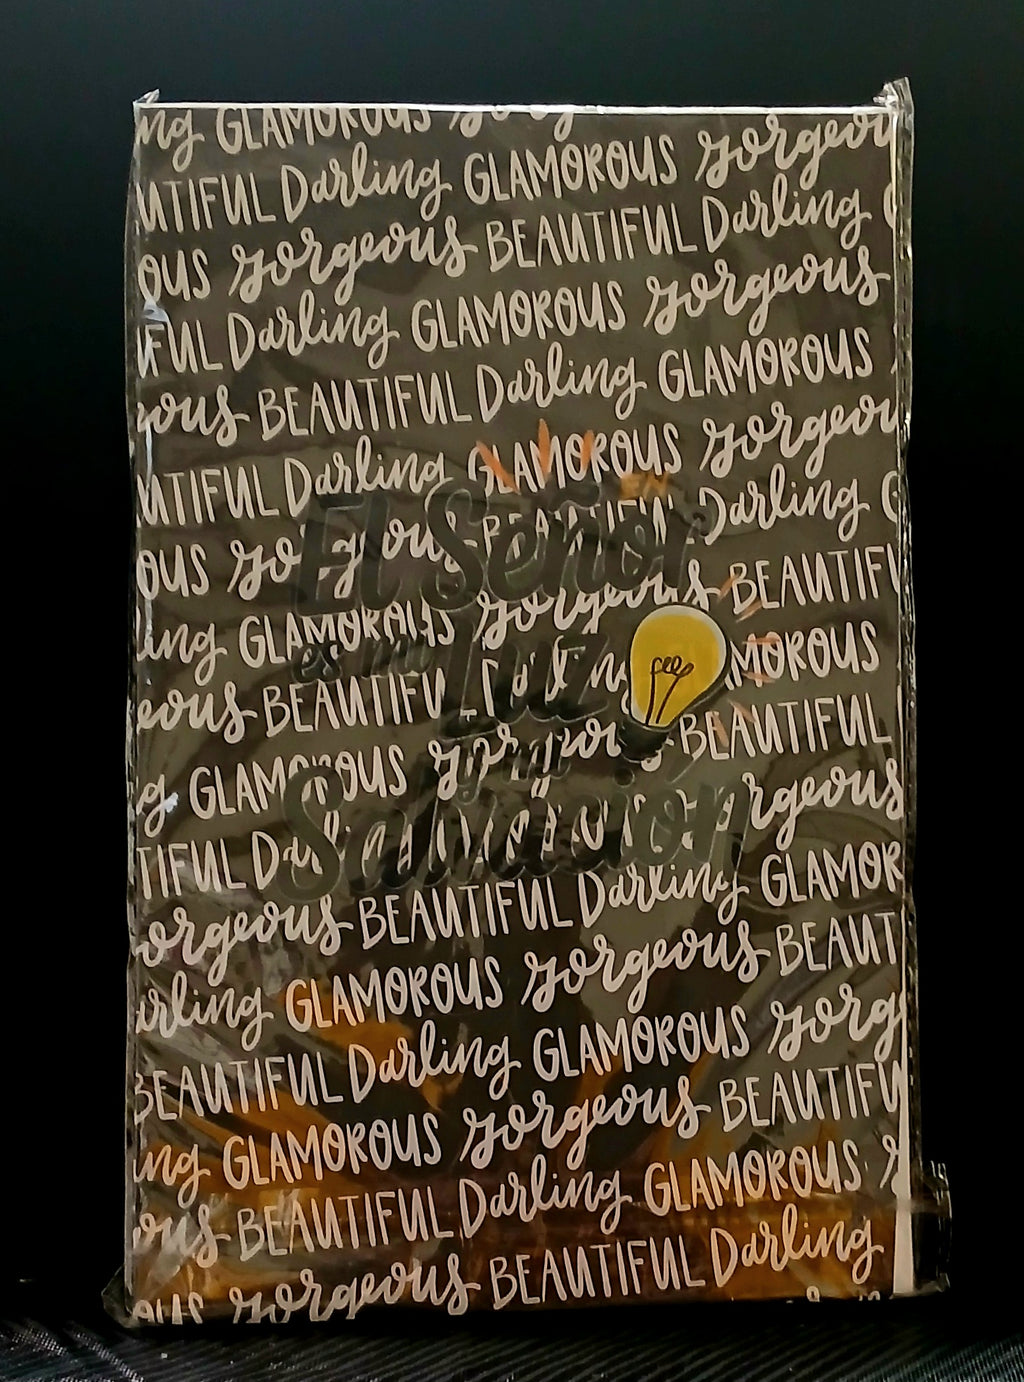 ng GLAMOROUS
UTIFUL Darling GLAMOROUS gorgeou
OUS gorgeous BEAUTIFUL Darling
FUL Darling GLAMOROUS gorgeous
eous BEAUTIFUL Darling GLAMOROUS
UTIFUL Darling GLAMOROUS gorgeou
EN
OUS gorgeous BEAUTIFUL Darling
El Señor
ling GLAMOROUS gorgeous BEAUTIFU
es mi Luz
eous BEAUTIFUL Darling MOROUS
y mi
g GLAMOROUS gorgeous BEAUTIFUL
Salvación
TIFUL Darling rgeous
orgeous BEAUTIFUL Darling GLAMOR
arling GLAMOROUS gorgeous BEAUT
BEAUTIFUL Darling GLAMOROUS gorg
ng GLAMOROUS gorgeous BEAUTIFU
ous BEAUTIFUL Darling GLAMOROUS
OUS gorgeous BEAUTIFUL Darling